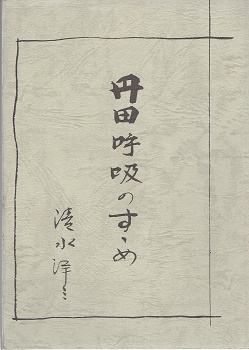 丹田呼吸のすゝめ
清水洋三